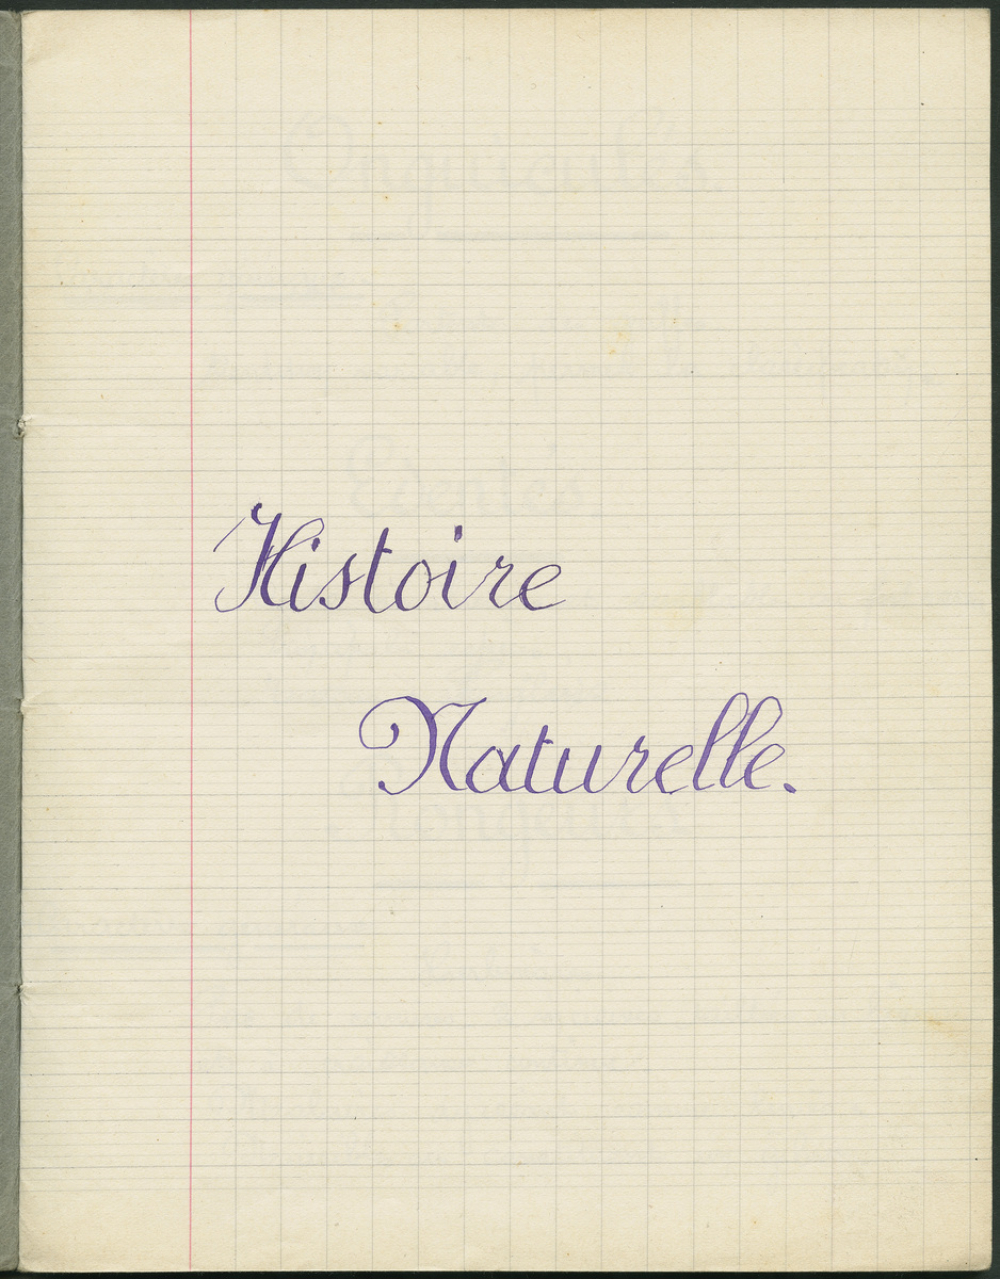 Histoire
Naturelle.